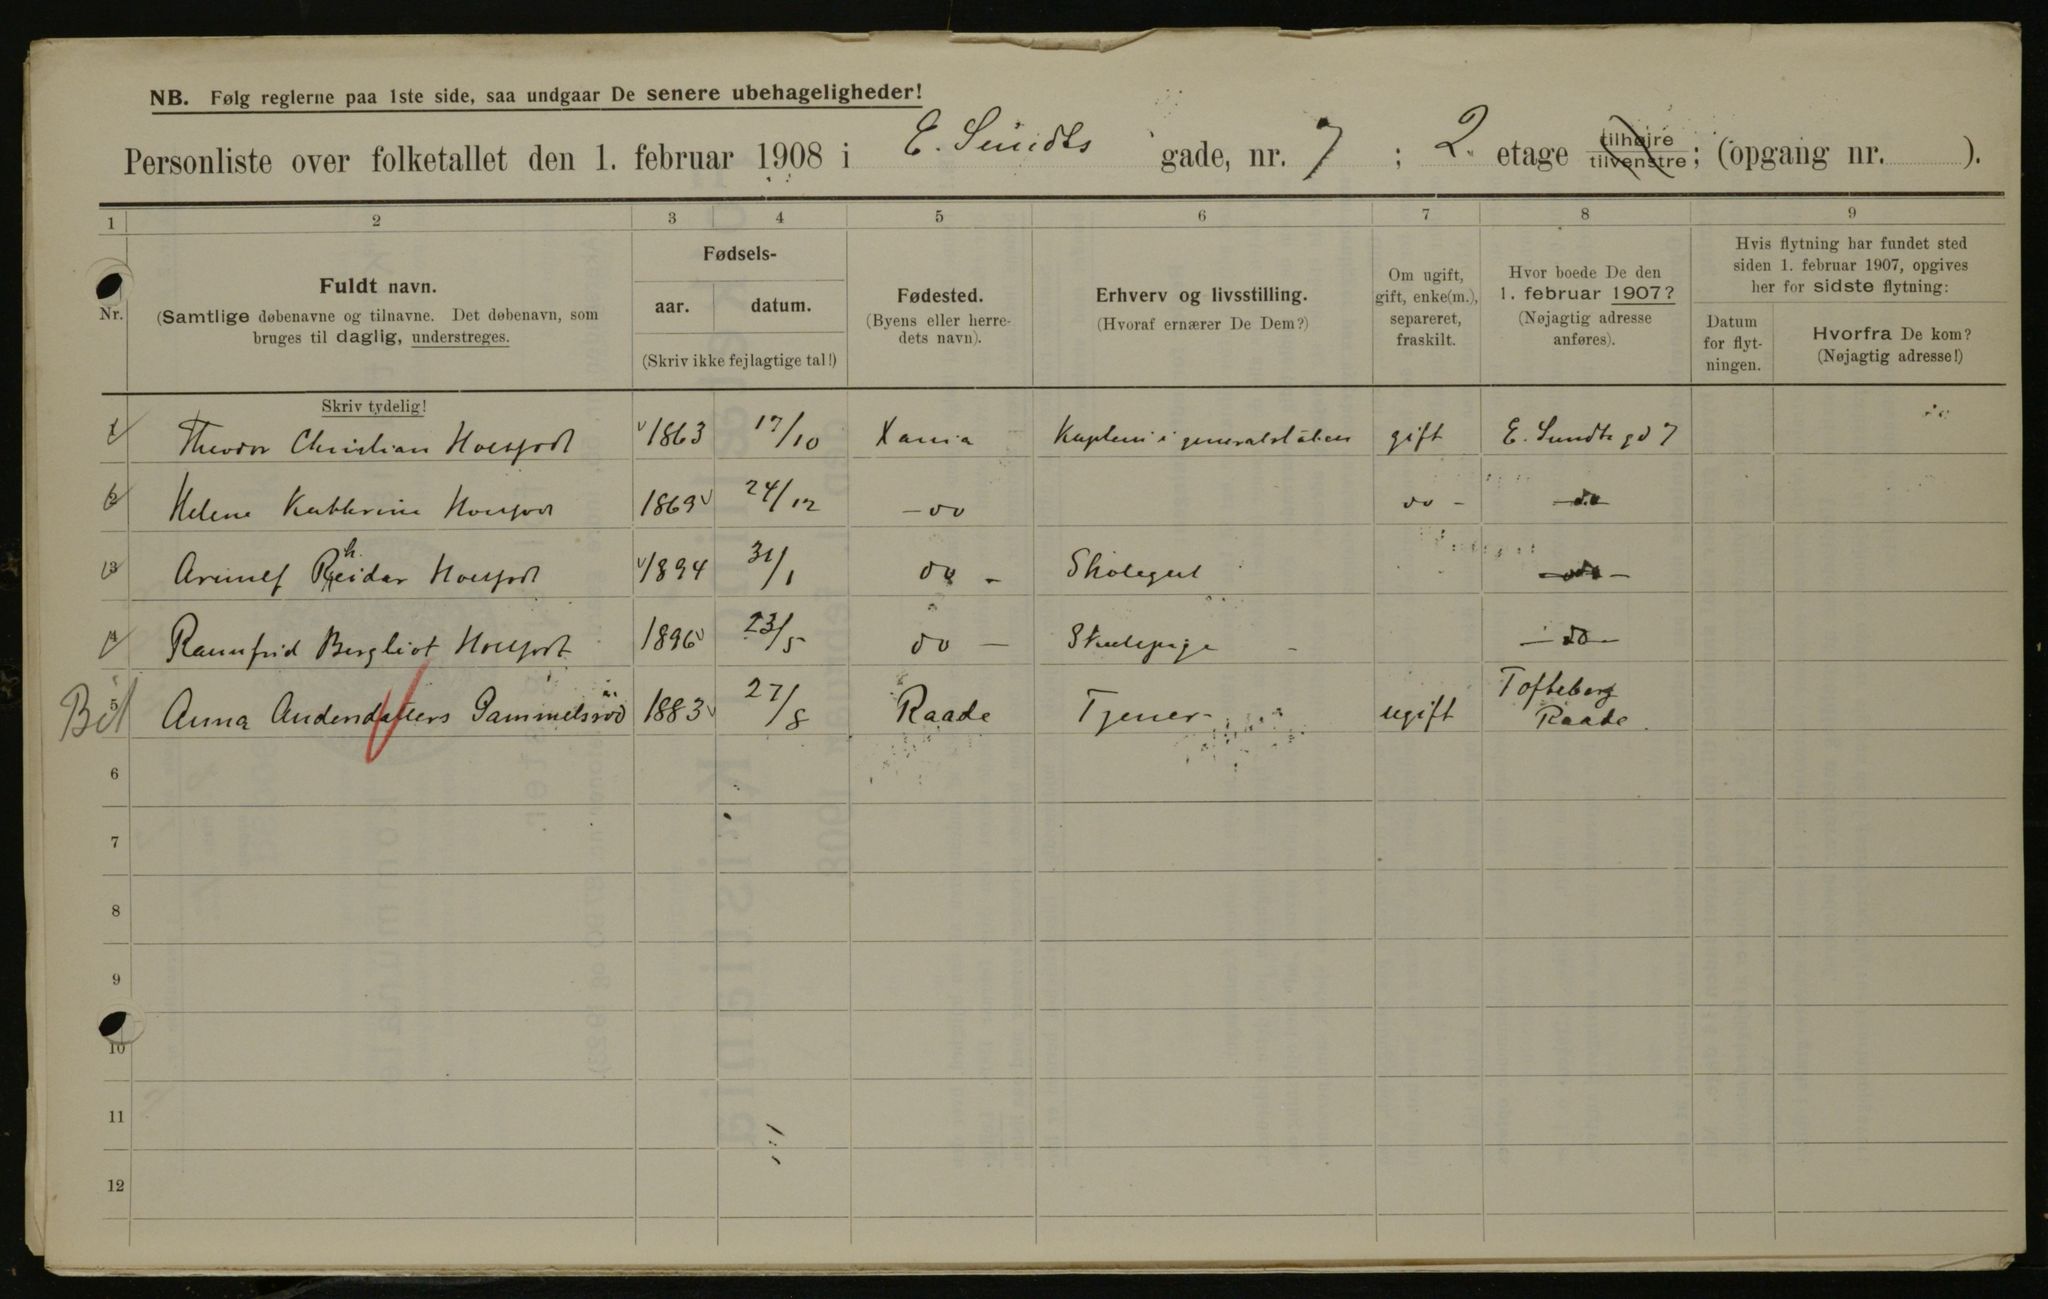 NB. Følg reglerne paa 1ste side, saa undgaar De senere ubehageligheder!
Personliste over folketallet den 1. februar 1908 i E. Sundts gade, nr. 7 ; 2. etage tilhøjre tilvenstre; (opgang nr. ).
1 2 3 4 5 6 7 8 9
Nr.
Fuldt navn.
(Samtlige døbenavne og tilnavne. Det døbenavn, som
bruges til daglig, understreges.
Skriv tydelig!
Fødsels-
aar. datum.
(Skriv ikke fejlagtige tal!)
Fødested.
(Byens eller herre-
dets navn).
Erhverv og livsstilling.
(Hvoraf ernærer De Dem?)
Om ugift,
gift, enke(m.),
separeret,
fraskilt.
Hvor boede De den
1. februar 1907?
(Nøjagtig adresse
anføres).
Hvis flytning har fundet sted
siden 1. februar 1907, opgives
her for sidste flytning:
Datum
for flyt-
ningen.
Hvorfra De kom?
(Nøjagtig adresse!)
1 Theodor Christian Holtfodt 1863 17/10 Xania Kaptein i generalstaben gift E. Sundts gd 7
2 Helene Kathrine Holtfodt 1869 24/12 - do do - - do -
3 Arnulf Rheidar Holtfodt 1894 31/1 do - Skolegut - do -
4 Raunfrid Bergliot Holtfodt 1896 23/5 do - Skolepige - - do -
5 Anna Andersdatters Sammelsrød 1883 27/8 Raade Tjener- ugift Tofteberg
Raade
6
7
8
9
10
11
12